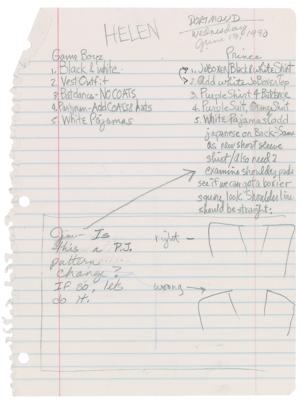 HELEN
DORTMUND
Wednesday
June 13, 1990
Game Boyz
1. Black & White
2. Vest Outfit
3. Batdance - NO COATS
4. - Add COATS & hats
5. White Pajamas
Prince
1. Black & White Shirt
2. add white Top
3. Purple Shirt & Batdance
4. Purple Suit, Orange Suit
5. White Pajamas (add
japanese on Back - Same
as new short sleeve
shirt / also need 2
examine shoulder pads
see if we can get a boxier
square look. Shoulder line
should be straight.
Jim - Is
this a P.J.
pattern
change?
If so, let's
do it.
right
wrong